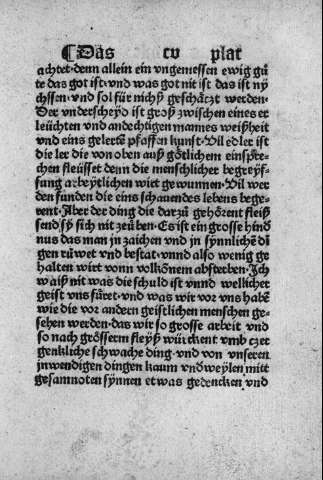 ¶Das cv plat
achtet·denn allein ein vngemessen ewig gů
te das got ist·vnd was got nit ist das ist ny
chssen·vnd sol für nichß geschäczt werden·
Der vnderscheyd ist groß zwischen eines er
leüchten vnd andechtigen mannes weißheit
vnd eins gelertē pfaffen kunst·Uil edler ist
die ler die von oben auß götlichem einspre⸗
chen fleüsset denn die menschlicher begreyf⸗
fung arbeytlichen wirt gewunnen·Uil wer
den funden die eins schauendes lebens bege⸗
rent·Aber der ding die darzů gehörent fleiß
send sy sich nit zeüben·Es ist ein grosse hind
nus das man jn zaichen vnd jn synnlichē di
gen růwet vnd bestat·vnnd also wenig ge
halten wirt vonn volkōmem absterben·Ich
waiß nit was die schuld ist vnnd wellicher
geist vns füret·vnd was wir vor vns habē
wie die vor andern geistlichen menschen ge⸗
sehen werden·das wir so grosse arbeit vnd
so nach grösserm fleyß würckent vmb czer
genkliche schwache ding·vnd von vnseren
jnwendigen dingen kaum vnd weylen mitt
gesamnoten synnen etwas gedencken vnd